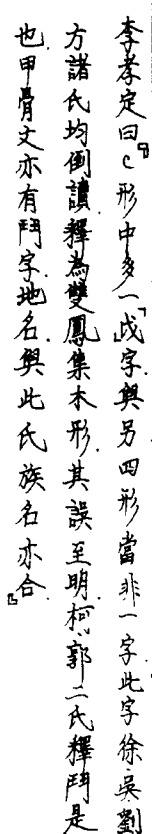 李孝定曰『c形中多一「戉」字，與另四形當非一字。此字徐、吳、劉、
方諸氏均倒讀，釋為雙鳳集木形，其誤至明。柯、郭二氏釋鬥是
也。甲骨文亦有鬥字，地名，與此氏族名亦合。』